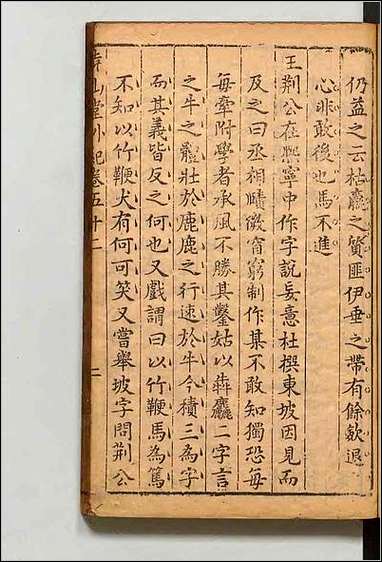 仍益之云枯羸之質匪伊垂之帶有餘歛退
心非敢後也馬不進
王荊公在熙寧中作字說妄意杜撰東坡因見而
及之曰丞相賾微窅窮制作某不敢知獨恐每
每牽附學者承風不勝其鑿姑以犇麤二字言
之牛之體壯於鹿鹿之行速於牛今積三為字
而其義皆反之何也又戲謂曰以竹鞭馬為篤
不知以竹鞭犬有何可笑又嘗舉坡字問荊公
堯山堂外紀卷五十二 二